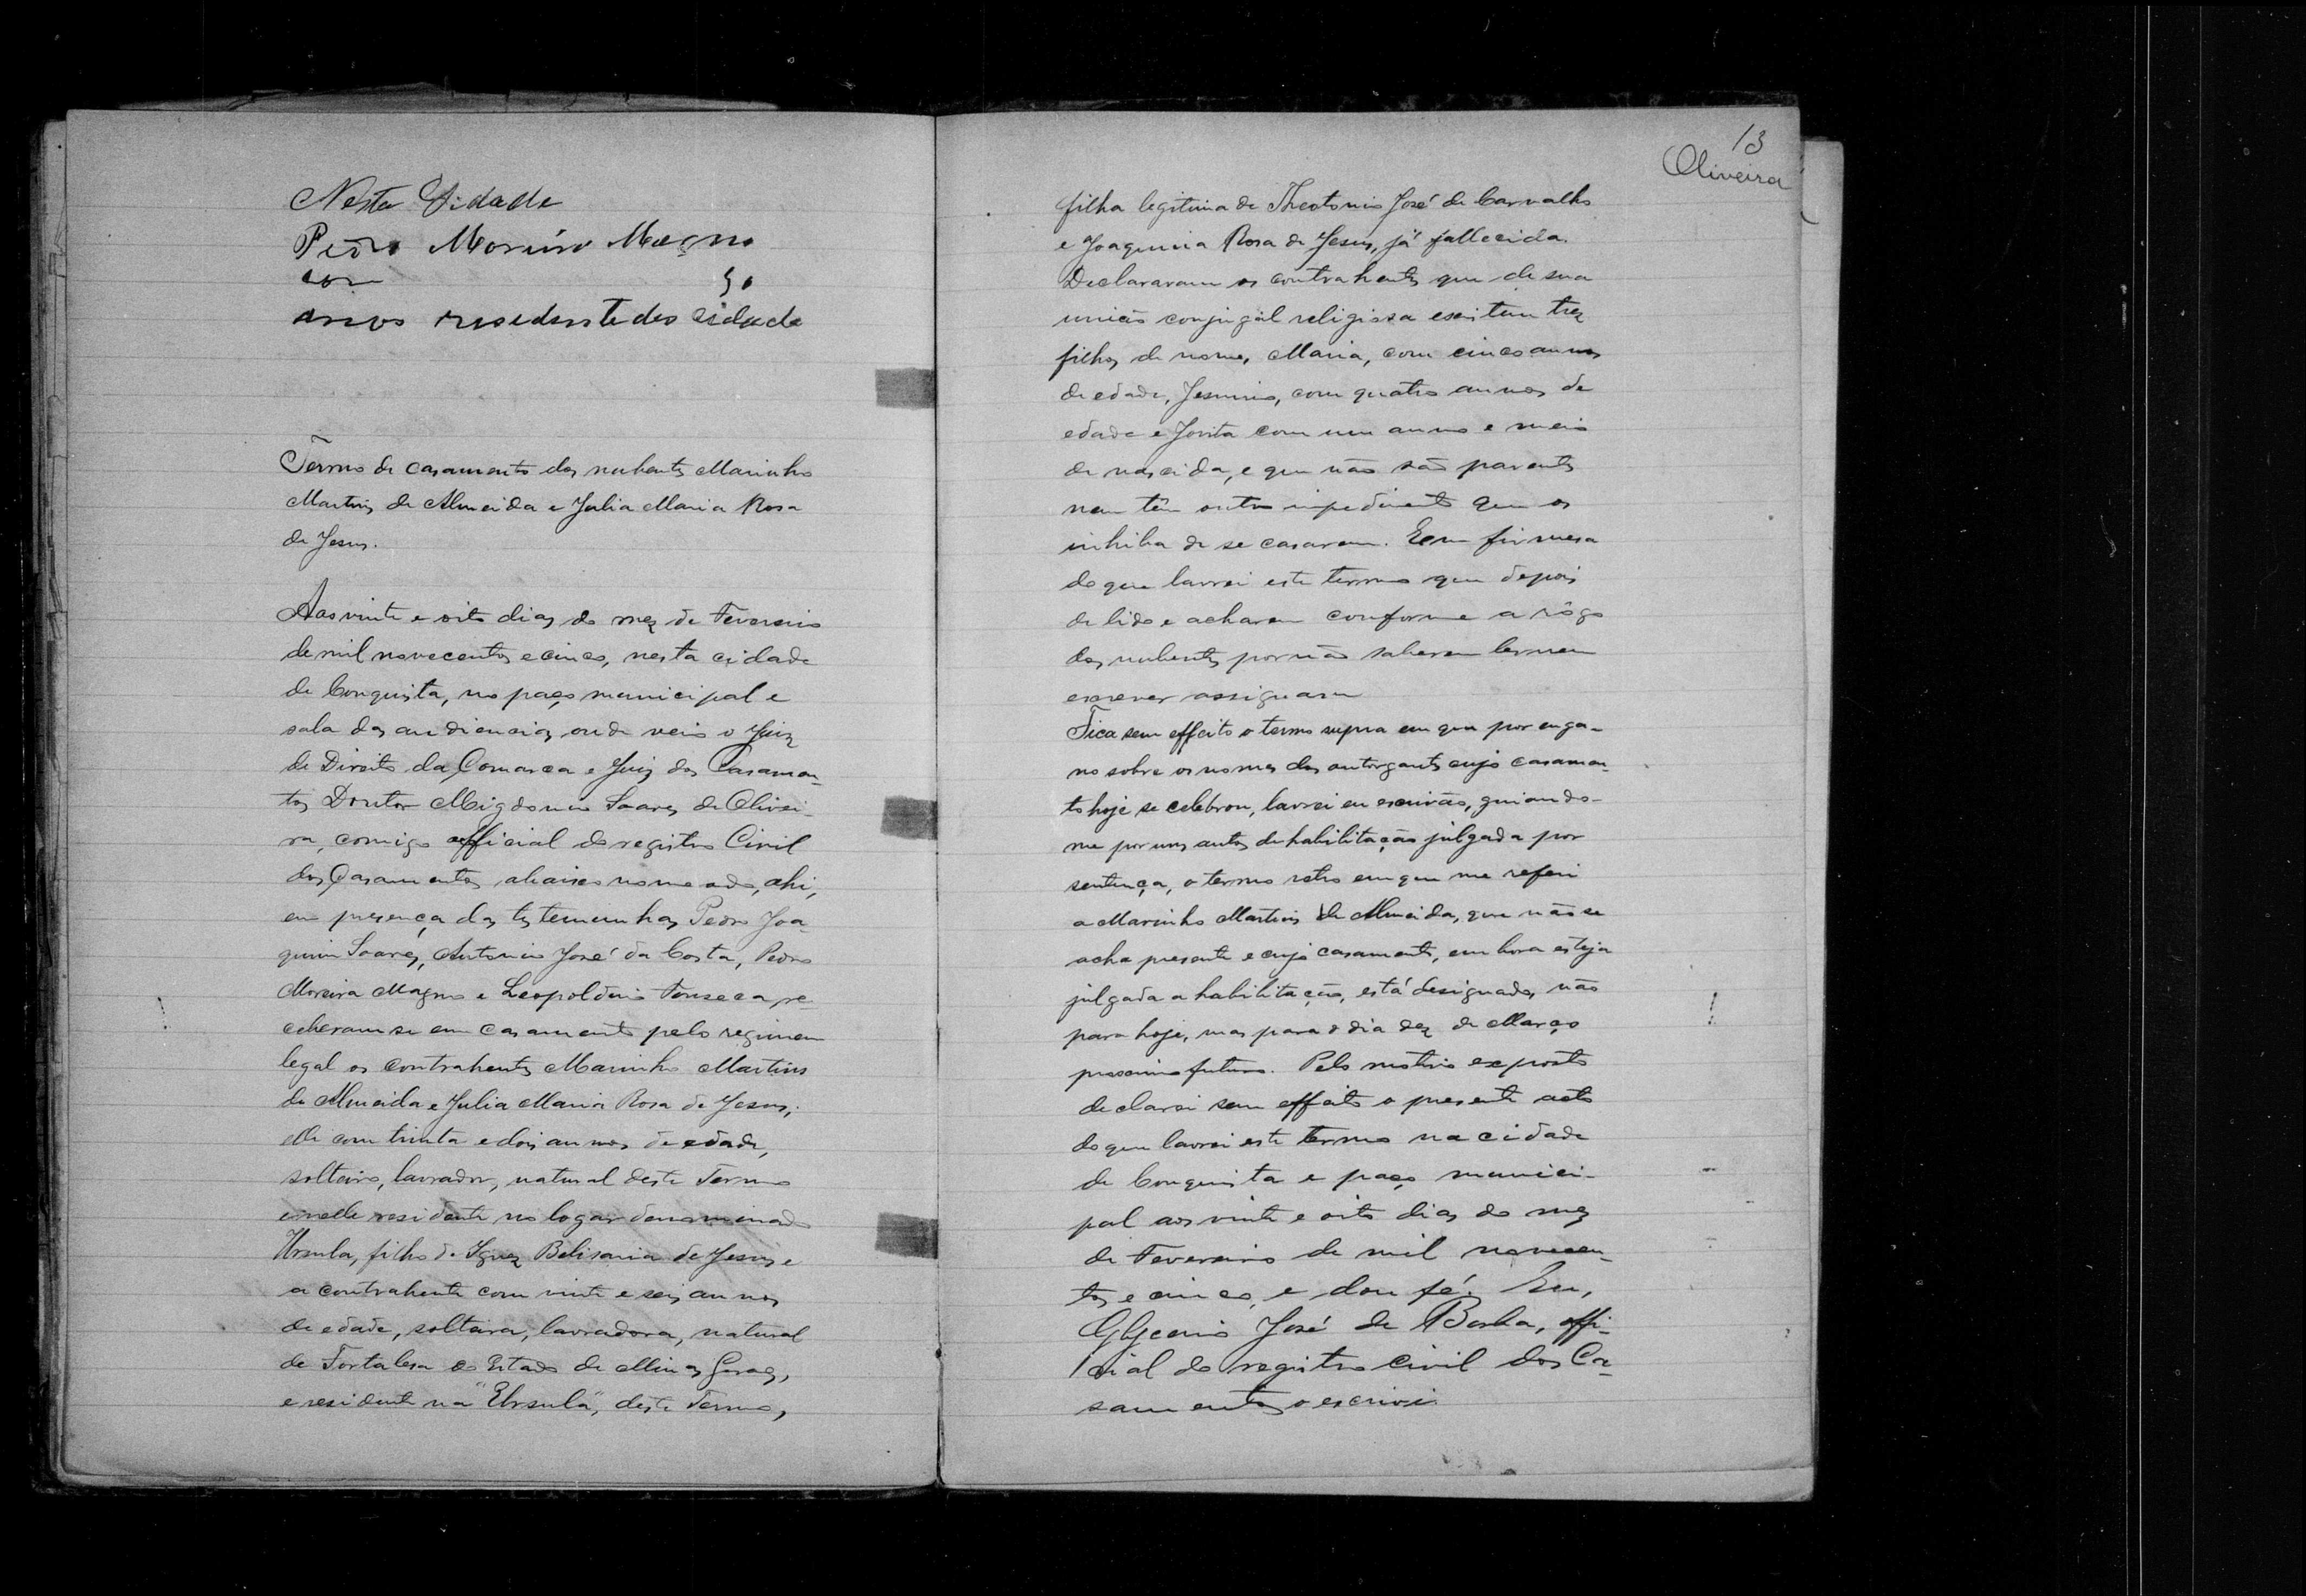 Nesta Cidade
Pedro Moreira Magno
com 50
annos residente des cidade
Termo de casamento dos nubentes Marinho
Martins de Almeida e Julia Maria Rosa
de Jesus.
Aos vinte e oito dias do mez de Fevereiro
de mil novecentos e cinco, nesta cidade
de Conquista, no paço municipal e
sala das audiencias, onde veio o Juiz
de Direito da Comarca e Juiz dos Casamen-
tos Doutor Migdonio Soares de Olivei-
ra, comigo official do registro Civil
dos Casamentos abaixo nomeado, ahi,
em presença das testemunhas Pedro Joa-
quim Soares, Antonio José da Costa, Pedro
Moreira Magno e Leopoldino Fonseca re-
ceberam se em casamento pelo regimen
legal os contrahentes Marinho Martins
de Almeida e Julia Maria Rosa de Jesus;
elle com trinta e dois annos de edade,
solteiro, lavrador, natural deste Termo
e nelle residente no logar denominado
Ursula, filho de Ignez Belisaria de Jesus e
a contrahente com vinte e seis annos
de edade, solteira, lavradora, natural
de Fortalesa do Estado de Minas Geraes,
e residente na "Ursula", deste Termo,
13
Oliveira
filha legitima de Theotonio José de Carvalho
e Joaquina Rosa de Jesus, já fallecida.
Declararam os contrahentes que de sua
união conjugal religiosa existem trez
filhos de nomes, Maria, com cinco annos
de edade, Jesuino, com quatro annos de
edade e Jovita com um anno e meio
de nascida, e que não são parentes
nem têm outro impedimento que os
inhiba de se casarem. E em firmesa
do que lavrei este termo que depois
de lido e acharem conforme a rôgo
dos nubentes por não saberem ler nem
escrever assignam
Fica sem effeito o termo supra em que por enga-
no sobre os nomes dos outorgantes cujo casamen-
to hoje se celebrou, lavrei eu escrivão, guiando-
me por uns autos de habilitação julgada por
sentença, o termo retro em que me referi
a Marinho Martins de Almeida, que não se
acha presente e cujo casamento, embora esteja
julgada a habilitação, está designado, não
para hoje, mas para o dia dez de Março
proximo futuro. Pelo motivo exposto
declarei sem effeito o presente acto
do que lavrei este termo na cidade
de Conquista e paço munici-
pal aos vinte e oito dias do mez
de Fevereiro de mil novecen-
tos e cinco, e dou fé. Eu,
Glycerio José de Borba, offi-
cial do registro civil dos Ca-
samentos o escrivi